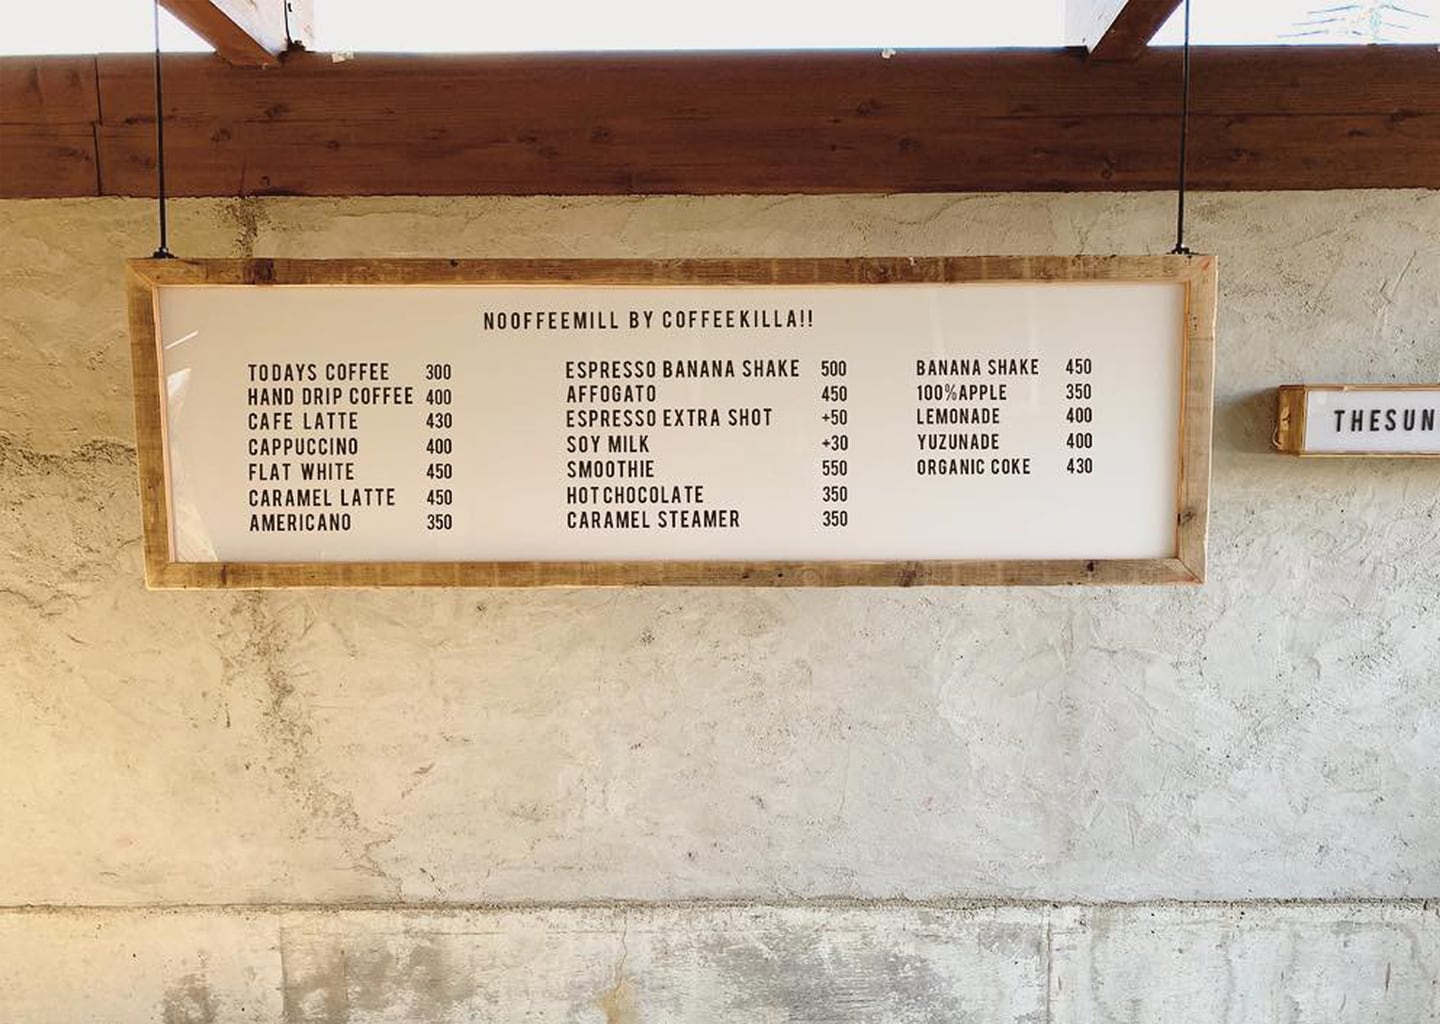 NOOFFEEMILL BY COFFEEKILLA!!
TODAYS COFFEE 300
HAND DRIP COFFEE 400
CAFE LATTE 430
CAPPUCCINO 400
FLAT WHITE 450
CARAMEL LATTE 450
AMERICANO 350
ESPRESSO BANANA SHAKE 500
AFFOGATO 450
ESPRESSO EXTRA SHOT +50
SOY MILK +30
SMOOTHIE 550
HOT CHOCOLATE 350
CARAMEL STEAMER 350
BANANA SHAKE 450
100%APPLE 350
LEMONADE 400
YUZUNADE 400
ORGANIC COKE 430
THESUN